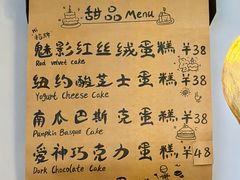 甜品 Menu
招牌
魅影红丝绒蛋糕 ¥38
Red velvet cake
纽约酸芝士蛋糕 ¥38
Yogurt Cheese Cake
南瓜巴斯克蛋糕 ¥38
Pumpkin Basque Cake
爱神巧克力蛋糕 ¥48
Dark Chocolate Cake